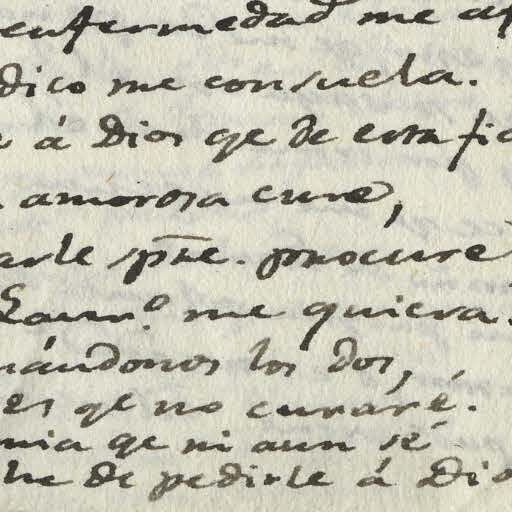 enfermedad me a
dico me consuela.
á Dios qe de esta fi
amorosa cure,
arle spre. procuré
Laurº. me quiera.
nándonos los dos,
es qe no curaré.
nia qe ni aun sé
he de pedirle á Dio